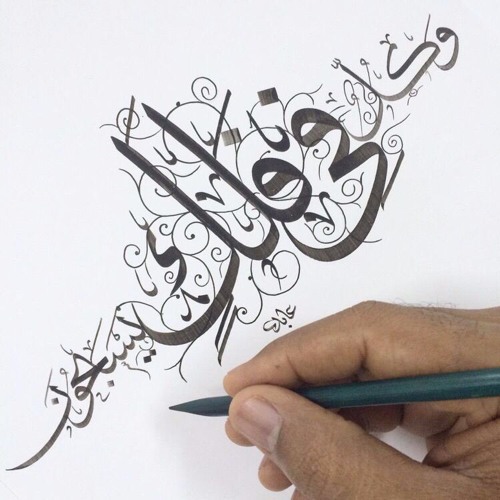 وكل في فلك يسبحون